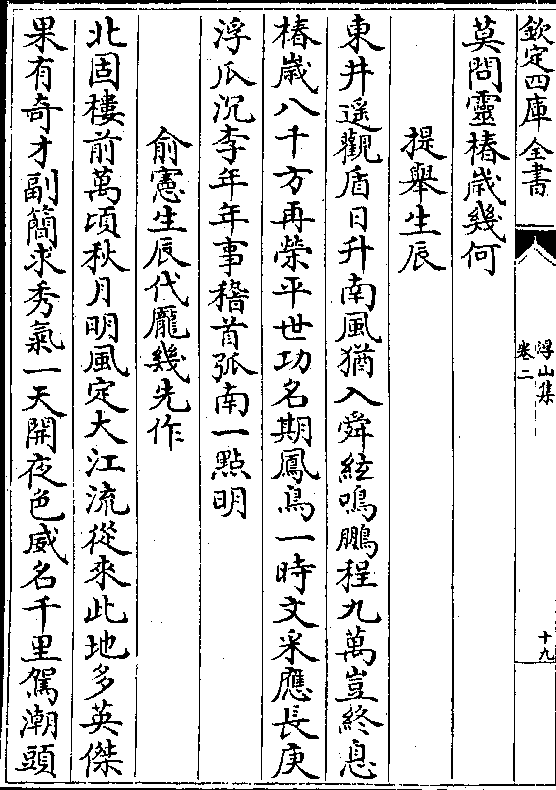 欽定四庫全書
浮山集
卷二
十九
莫問靈椿歲幾何
提舉生辰
東井遥觀盾日升南風猶入舜絃鳴鵬程九萬豈終息
椿歲八千方再榮平世功名期鳳鳥一時文采應長庚
浮瓜沉李年年事稽首弧南一點明
俞憲生辰代龎幾先作
北固樓前萬頃秋月明風定大江流從來此地多英傑
果有奇才副簡求秀氣一天開夜色威名千里駕潮頭